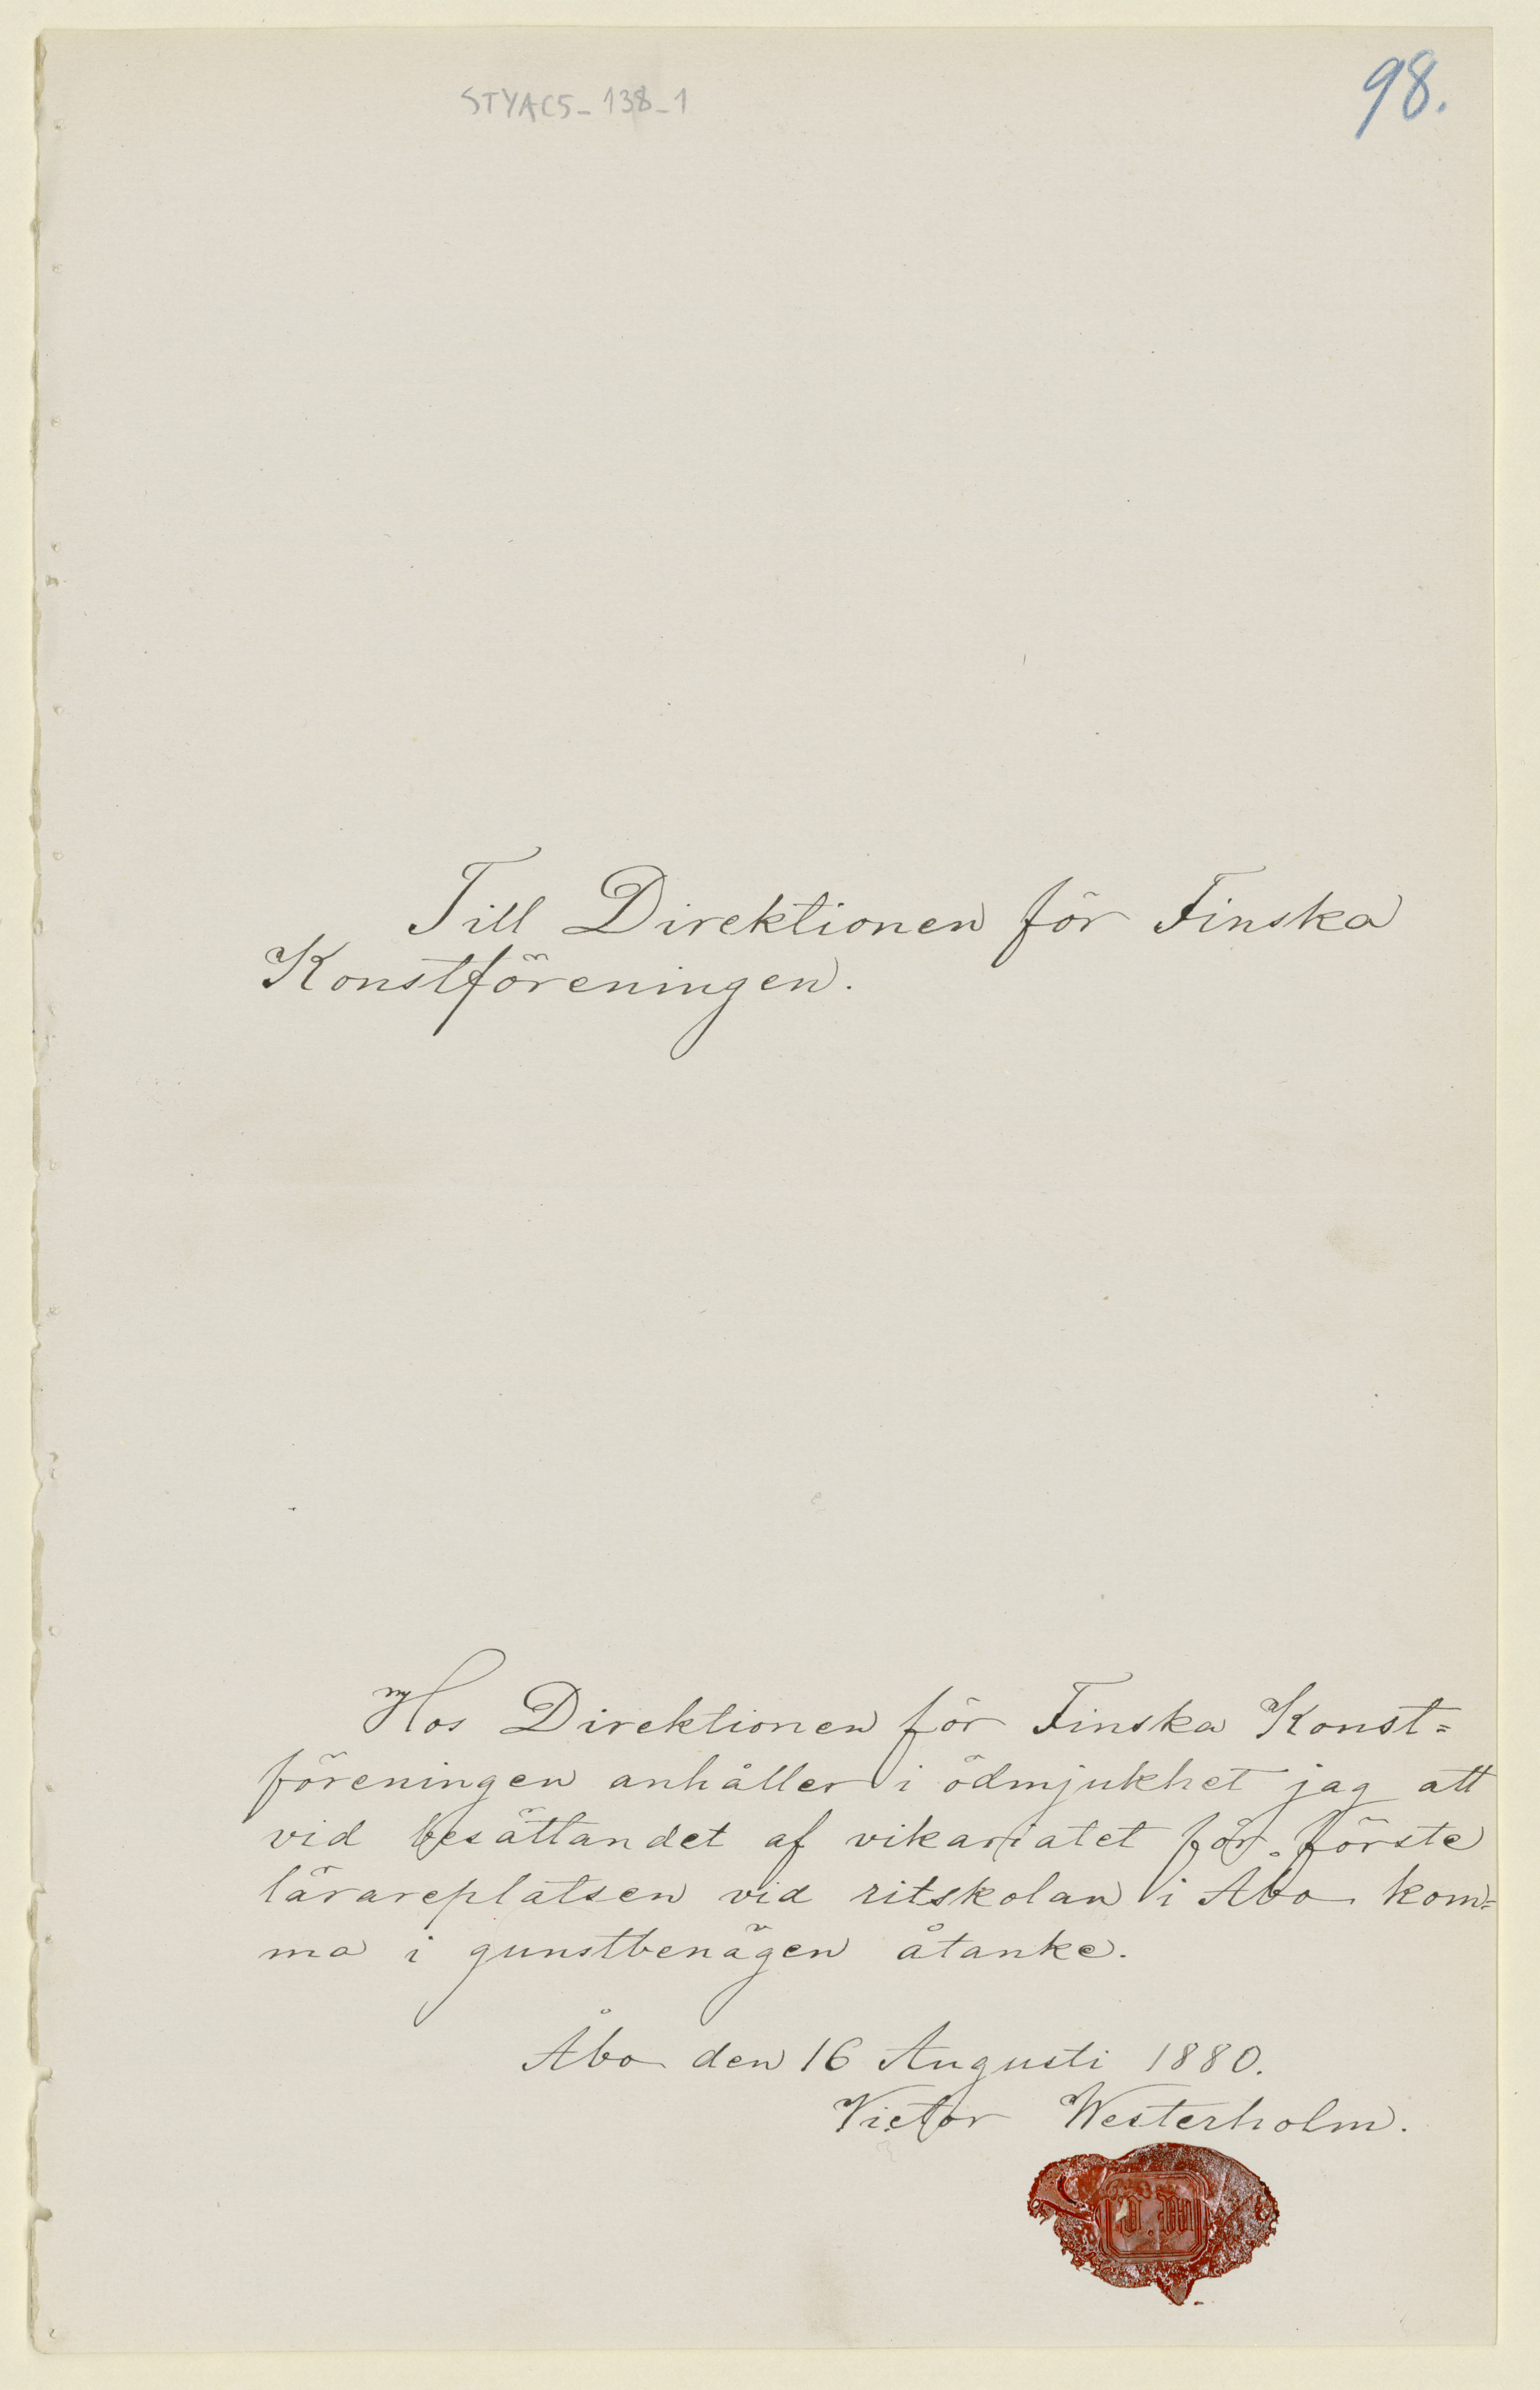 STYAC5_138_1
98.
Till Direktionen för Finska
Konstföreningen.
Hos Direktionen för Finska Konst=
föreningen anhåller i ödmjukhet jag att
vid besättandet af vikariatet för förste
lärareplatsen vid ritskolan i Åbo kom=
ma i gunstbenägen åtanke.
Åbo den 16 Augusti 1880.
Victor Westerholm.